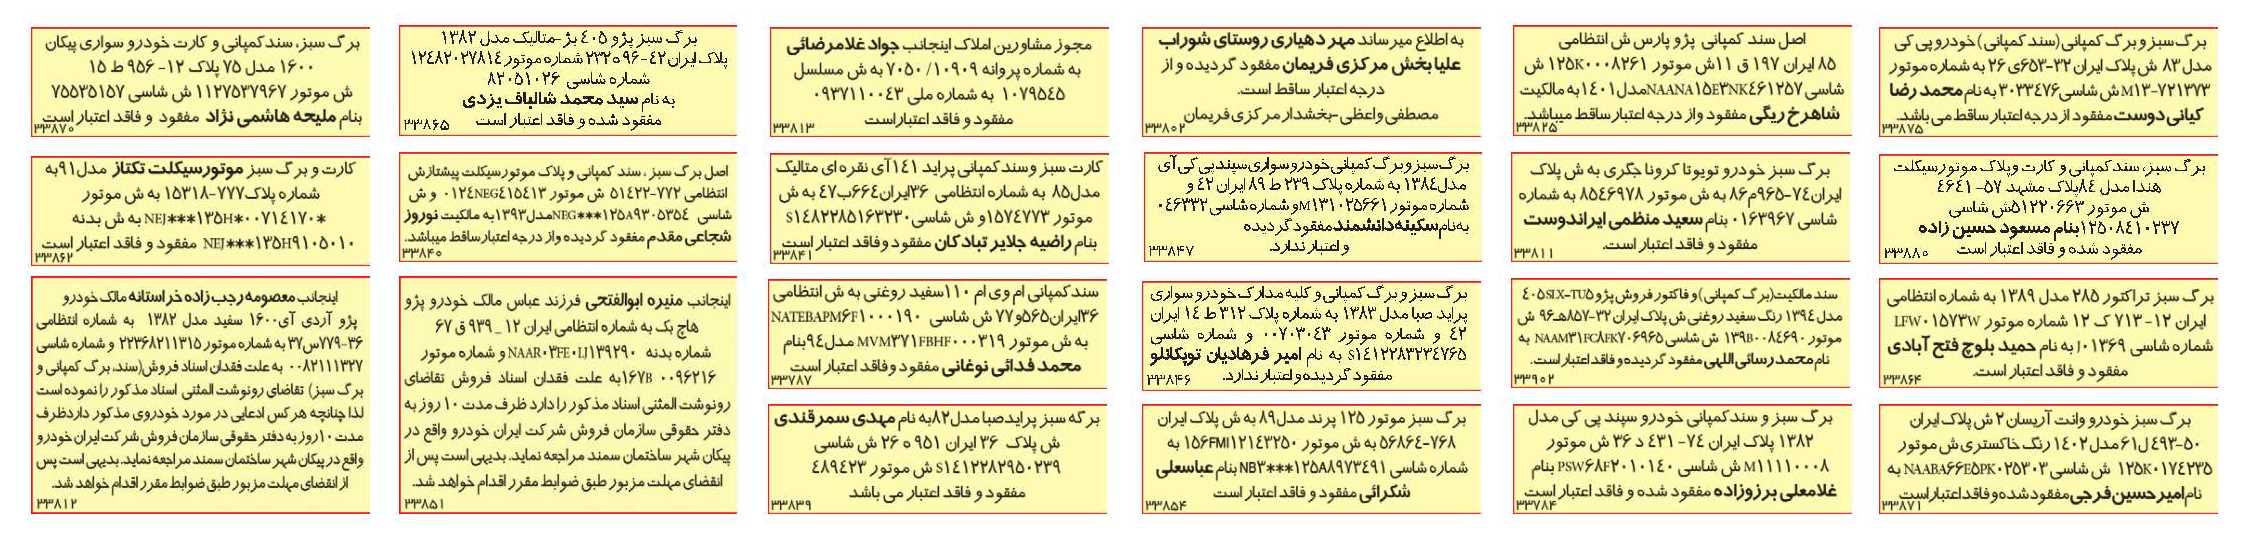 برگ سبز و برگ کمپانی (سند کمپانی) خودرو پی کی
مدل ۸۳ ش پلاک ایران ۳۲-۶۵۳ی ۲۶ به شماره موتور
M۱۳-۷۲۱۳۷۳ ش شاسی ۳۰۳۳۴۷۶ به نام محمد رضا
کیانی دوست مفقود از درجه اعتبار ساقط می باشد.
۳۳۸۷۵
برگ سبز، سند کمپانی و کارت وپلاک موتورسیکلت
هندا مدل ۸۴پلاک مشهد ۵۷- ۴۶۴۱
ش موتور ۵۱۲۲۰۶۶۳ش شاسی
۱۲۵۰۸۴۱۰۲۳۷بنام مسعود حسین زاده
مفقود شده و فاقد اعتبار است
۳۳۸۸۰
برگ سبز تراکتور ۲۸۵ مدل ۱۳۸۹ به شماره انتظامی
ایران ۱۲- ۷۱۳ ک ۱۲ شماره موتور LFW۰۱۵۷۳W
شماره شاسی ۰۱۳۶۹J به نام حمید بلوچ فتح آبادی
مفقود و فاقد اعتبار است.
۳۳۸۶۴
برگ سبز خودرو وانت آریسان ۲ ش پلاک ایران
۵۰-۴۹۳ل۶۱ مدل ۱۴۰۲ رنگ خاکستری ش موتور
۱۲۵K۰۱۷۴۲۳۵ ش شاسی NAABA۶۶E۵PK۰۲۵۳۰۳ به
نام امیرحسین فرجی مفقود شده و فاقد اعتبار است
۳۳۸۷۱
اصل سند کمپانی پژو پارس ش انتظامی
۸۵ ایران ۱۹۷ ق ۱۱ ش موتور ۱۲۵K۰۰۰۸۲۶۱ ش
شاسی NAANA۱۵E۳NK۴۶۱۲۵۷مدل۱۴۰۱به مالکیت
شاهرخ ریگی مفقود واز درجه اعتبار ساقط میباشد.
۳۳۸۲۵
برگ سبز خودرو تویوتا کرونا جگری به ش پلاک
ایران۷۴-۹۶۵م۸۶ به ش موتور ۸۵۴۶۹۷۸ به شماره
شاسی ۰۱۶۳۹۶۷ بنام سعید منظمی ایراندوست
مفقود و فاقد اعتبار است.
۳۳۸۱۱
سند مالکیت(برگ کمپانی) و فاکتور فروش پژو ۴۰۵SLX-TU۵
مدل ۱۳۹۴ رنگ سفید روغنی ش پلاک ایران ۳۲-۸۵۷هـ۹۶ ش
موتور ۱۳۹B۰۰۸۴۶۹۰ ش شاسی NAAM۳۱FC۸FK۷۰۶۹۶۵ به
نام محمد رسائی اللهی مفقود گردیده و فاقد اعتبار است.
۳۳۹۰۲
برگ سبز و سند کمپانی خودرو سپند پی کی مدل
۱۳۸۲ پلاک ایران ۷۴- ۴۳۱ د ۳۶ ش موتور
M۱۱۱۱۰۰۰۸ ش شاسی PSW۶۸F۲۰۱۰۱۴۰ بنام
غلامعلی برزوزاده مفقود شده و فاقد اعتبار است
۳۳۷۸۴
به اطلاع میرساند مهر دهیاری روستای شوراب
علیا بخش مرکزی فریمان مفقود گردیده و از
درجه اعتبار ساقط است.
مصطفی واعظی-بخشدار مرکزی فریمان
۳۳۸۰۲
برگ سبز وبرگ کمپانی خودرو سواری سپند پی کی آی
مدل۱۳۸۴ به شماره پلاک ۲۳۹ ط ۸۹ ایران ۴۲ و
شماره موتور M۱۳۱۰۲۵۶۶۱و شماره شاسی ۰۴۶۳۳۲
به نام سکینه دانشمند مفقود گردیده
و اعتبار ندارد.
۳۳۸۴۷
برگ سبز و برگ کمپانی و کلیه مدارک خودرو سواری
پراید صبا مدل ۱۳۸۳ به شماره پلاک ۳۱۲ ط ۱۴ ایران
۴۲ و شماره موتور ۰۰۷۰۳۰۴۳ و شماره شاسی
S۱۴۱۲۲۸۳۲۳۴۷۶۵ به نام امیر فرهادیان توپکانلو
مفقود گردیده و اعتبار ندارد.
۳۳۸۴۶
برگ سبز موتور ۱۲۵ پرند مدل۸۹ به ش پلاک ایران
۷۶۸-۵۶۸۶۴ به ش موتور ۱۵۶FMI۱۲۱۴۳۲۵۰ به
شماره شاسی NB۳***۱۲۵A۸۹۷۳۴۹۱ بنام عباسعلی
شکرائی مفقود و فاقد اعتبار است
۳۳۸۵۴
مجوز مشاورین املاک اینجانب جواد غلامرضائی
به شماره پروانه ۱۰۹۰۹/ ۷۰۵۰ به ش مسلسل
۱۰۷۹۵۴۵ به شماره ملی ۰۹۳۷۱۱۰۰۴۳
مفقود و فاقد اعتباراست
۳۳۸۱۳
کارت سبز وسند کمپانی پراید ۱۴۱آی نقره ای متالیک
مدل۸۵ به شماره انتظامی ۳۶ایران۶۶۴ب۴۷ به ش
موتور ۱۵۷۴۷۷۳و ش شاسی S۱۴۸۲۲۸۵۱۶۳۲۳۰
بنام راضیه جلایر تبادکان مفقود وفاقد اعتبار است
۳۳۸۴۱
سند کمپانی ام وی ام ۱۱۰سفید روغنی به ش انتظامی
۳۶ایران۵۶۵و۷۷ ش شاسی NATEBAPM۶F۱۰۰۰۱۹۰
به ش موتور MVM۳۷۱FBHF۰۰۰۳۱۹ مدل۹۴بنام
محمد فدائی نوغانی مفقود وفاقد اعتبار است
۳۳۷۸۷
برگه سبز پراید صبا مدل۸۲به نام مهدی سمرقندی
ش پلاک ۳۶ ایران ۹۵۱ ه ۲۶ ش شاسی
S۱۴۱۲۲۸۲۹۵۰۲۳۹ ش موتور ۴۸۹۴۲۳
مفقود و فاقد اعتبار می باشد
۳۳۸۳۹
برگ سبز پژو ۴۰۵ بژ-متالیک مدل ۱۳۸۲
پلاک ایران۴۲-۹۶ ه۲۳۲ شماره موتور ۱۲۴۸۲۰۲۷۸۱۴
شماره شاسی ۸۲۰۵۱۰۲۶
به نام سید محمد شالباف یزدی
مفقود شده و فاقد اعتبار است
۳۳۸۶۵
اصل برگ سبز ، سند کمپانی و پلاک موتورسیکلت پیشتازش
انتظامی ۷۷۲-۵۱۴۲۲ ش موتور ۰۱۲۴NEG۴۱۵۴۱۳ و ش
شاسی NEG***۱۲۵A۹۳۰۵۳۵۴مدل۱۳۹۳به مالکیت نوروز
شجاعی مقدم مفقود گردیده و از درجه اعتبار ساقط میباشد.
۳۳۸۴۰
اینجانب منیره ابوالفتحی فرزند عباس مالک خودرو پژو
هاچ بک به شماره انتظامی ایران ۱۲ _ ۹۳۹ ق ۶۷
شماره بدنه NAAR۰۳FE۰LJ۱۳۹۲۹۰ و شماره موتور
۱۶۷B ۰۰۹۶۲۱۶به علت فقدان اسناد فروش تقاضای
رونوشت المثنی اسناد مذکور را دارد ظرف مدت ۱۰ روز به
دفتر حقوقی سازمان فروش شرکت ایران خودرو واقع در
پیکان شهر ساختمان سمند مراجعه نماید. بدیهی است پس از
انقضای مهلت مزبور طبق ضوابط مقرر اقدام خواهد شد.
۳۳۸۵۱
برگ سبز، سند کمپانی و کارت خودرو سواری پیکان
۱۶۰۰ مدل ۷۵ پلاک ۱۲- ۹۵۶ ط ۱۵
ش موتور ۱۱۲۷۵۳۷۹۶۷ ش شاسی ۷۵۵۳۵۱۵۷
بنام ملیحه هاشمی نژاد مفقود و فاقد اعتبار است
۳۳۸۷۰
کارت و برگ سبز موتورسیکلت تکتاز مدل۹۱به
شماره پلاک۷۷۷-۱۵۳۱۸ به ش موتور
NEJ***۱۳۵H*۰۰۷۱۴۱۷۰* به ش بدنه
NEJ***۱۳۵H۹۱۰۵۰۱۰ مفقود و فاقد اعتبار است
۳۳۸۶۲
اینجانب معصومه رجب زاده خراستانه مالک خودرو
پژو آردی آی۱۶۰۰ سفید مدل ۱۳۸۲ به شماره انتظامی
۳۶-۷۷۹س۳۷ به شماره موتور ۲۲۳۶۸۲۱۱۳۱۵ و شماره شاسی
۰۰۸۲۱۱۱۳۲۷ به علت فقدان اسناد فروش(سند، برگ کمپانی و
برگ سبز) تقاضای رونوشت المثنی اسناد مذکور را نموده است
لذا چنانچه هر کس ادعایی در مورد خودروی مذکور دارد ظرف
مدت ۱۰ روز به دفتر حقوقی سازمان فروش شرکت ایران خودرو
واقع در پیکان شهر ساختمان سمند مراجعه نماید. بدیهی است پس
از انقضای مهلت مزبور طبق ضوابط مقرر اقدام خواهد شد.
۳۳۸۱۲